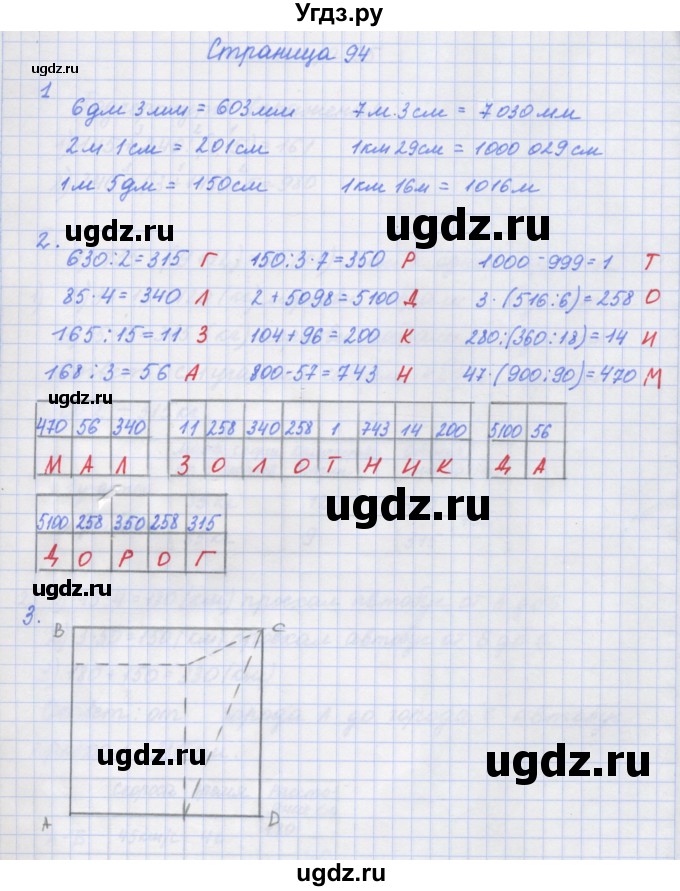 Угдз.ру
Страница 94
ugdz.ru
ugdz.ru
1
6дм 3мм = 603мм 7м 3см = 7030мм
2м 1см = 201см 1км 29см = 1000 029см
1м 5дм = 150см 1км 16м = 1016м
ugdz.ru ugdz.ru
2.
630:2=315 Г 150:3·7=350 Р 1000-999=1 Т
85·4=340 Л 2+5098=5100 Д 3·(516:6)=258 О
165:15=11 З 104+96=200 К 280:(360:18)=14 И
168:3=56 А 800-57=743 Н 47·(900:90)=470 М
ugdz.ru
470 56 340 11 258 340 258 1 743 14 200 5100 56
М А Л З О Л О Т Н И К Д А
ugdz.ru
5100 258 350 258 315
Д О Р О Г
ugdz.ru
3.
B C
ugdz.ru
ugdz.ru
A D
ugdz.ru
Угдз.ру